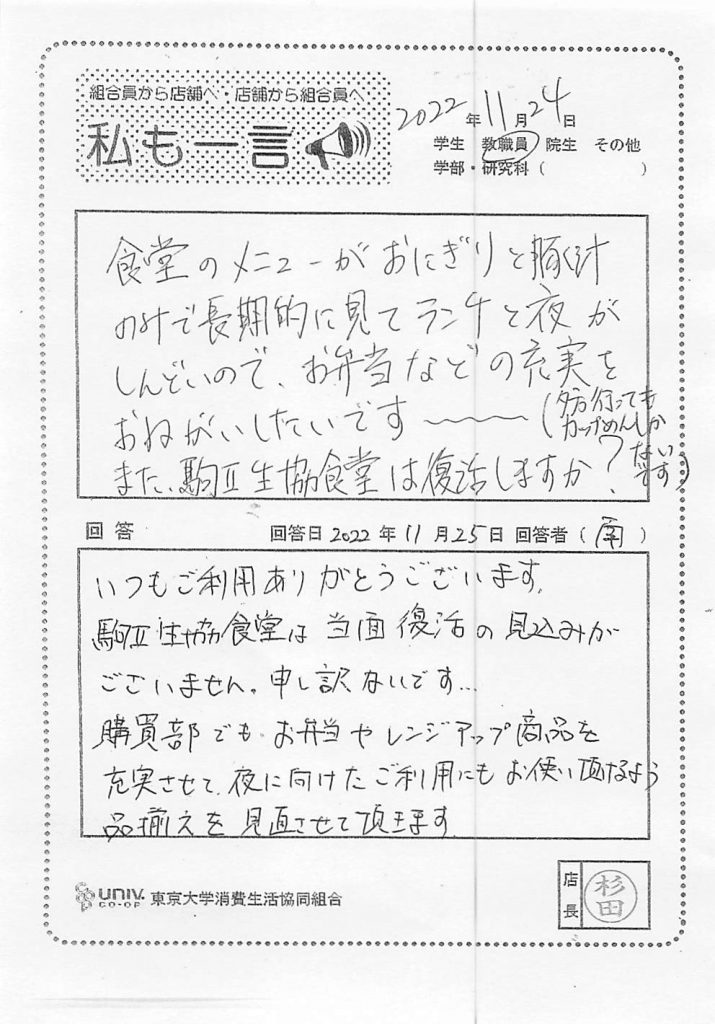 組合員から店舗へ・店舗から組合員へ
私も一言
2022年11月24日
学生 教職員 院生 その他
学部・研究科（ ）
食堂のメニューがおにぎりと豚汁
のみで長期的に見てランチと夜が
しんどいので、お弁当などの充実を
おねがいしたいです
(夕方行っても
カップめんしか
ないです)
また、駒Ⅱ生協食堂は復活しますか?
回答 回答日 2022年11月25日 回答者（南）
いつもご利用ありがとうございます。
駒Ⅱ生協食堂は当面復活の見込みが
ございません。申し訳ないです...
購買部でも、お弁当やレンジアップ商品を
充実させて、夜に向けたご利用にもお使い頂けるよう
品揃えを見直させて頂きます
UNIV.
CO-OP
東京大学消費生活協同組合
店長
杉田